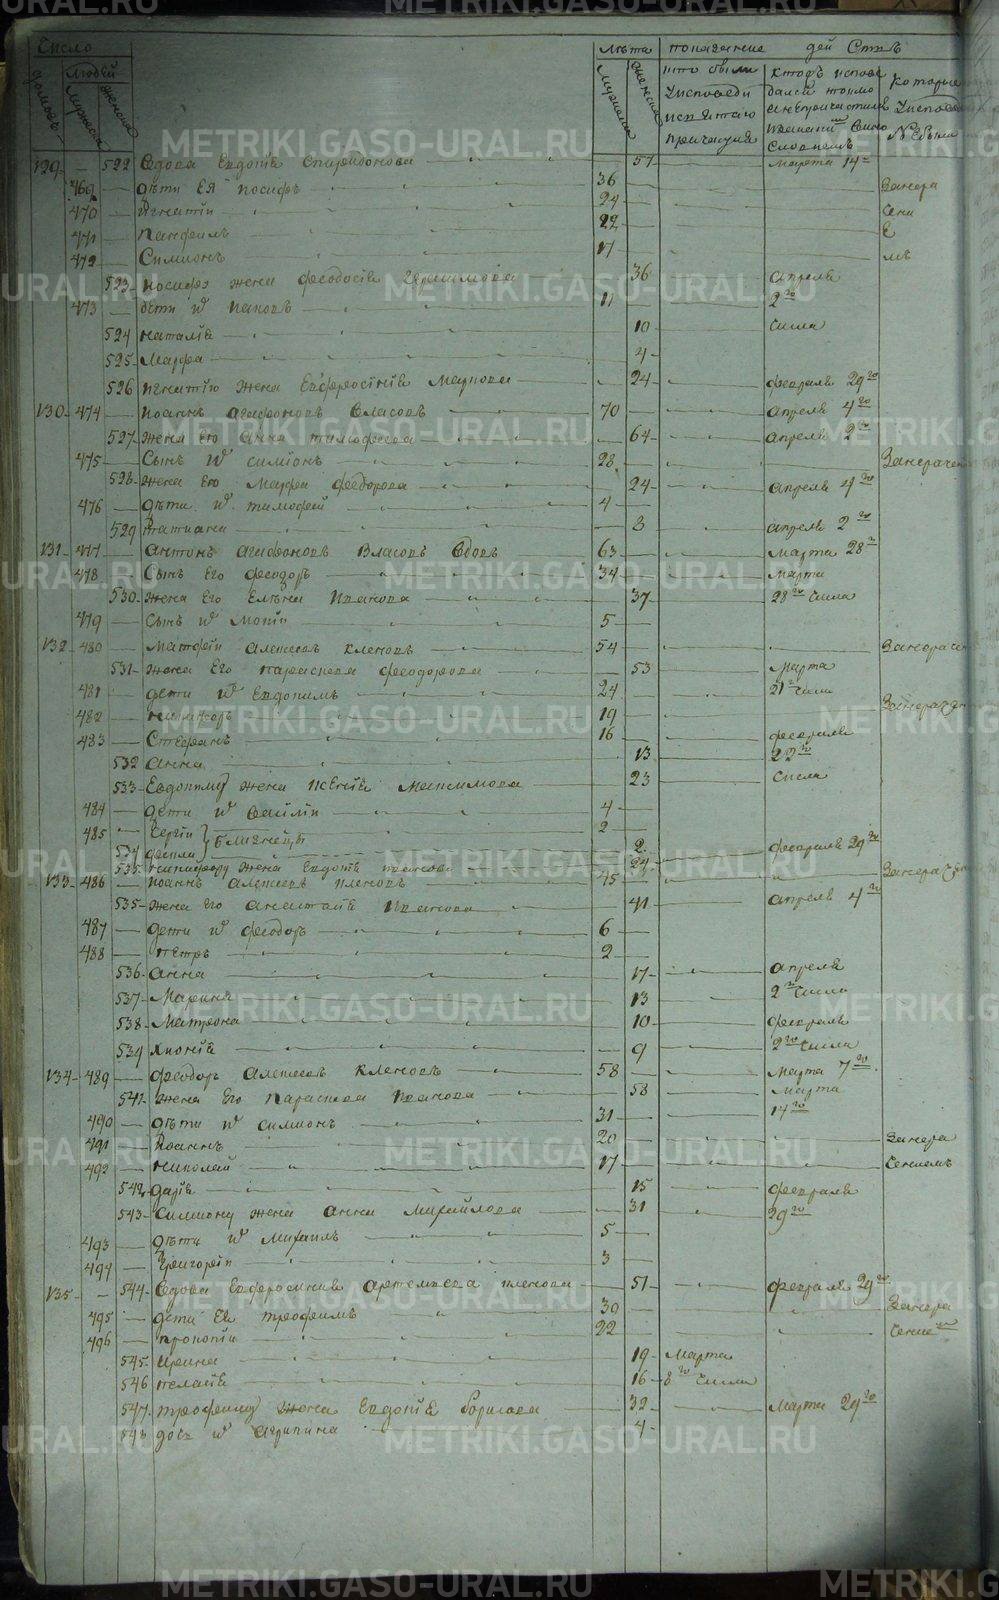 Число
Лѣта показание дей Ств
домовъ
людей
мужеска
женска
мужска
женска
кто были Уисповеди исвятаго причастия
ктобъ исповедался токмо
Которые Уисповеди Небыли
129 522 Вдова Евдокія Спиридонова 57 марта 14
469 дѣти Ея Иосифъ 36 Занера
470 Игнатій 24 Сени
471 Панфилъ 22 Е
472 Симионъ 17 мъ
523 Иосифу жена Феодосія Герасимова 36 апреля
473 дети их Иаковъ 11 2го
524 Наталія 10 Числа
525 Марфа 4
526 Игнатію жена Евфросінія Маркова 24 февраля 29го
130 474 Иоаннъ Агафоновъ Власовъ 70 апреля 4го
527 жена Его Анна Тимофеева 64 апреля 2го
475 Сынъ их Симіонъ 28 Занерачен
528 жена Его Марфа Феодорова 24 апреля 4го
476 дѣти их Тимофей 4
529 Татиана 8 апреля 2го
131 477 Антонъ Агафоновъ Власовъ Вдовъ 63 марта 28
478 Сынъ Его Феодоръ 34 марта
530 жена Его Елѣна Иванова 37 28го Числа
479 Сынъ их Мокій 5
132 480 Матфій Алексеевъ Кленовъ 54 Занерачен
531 жена Его Параскева Феодорова 53 марта
481 дети их Евдокимъ 24 21го Числа
482 Никифоръ 19 Занерачен
483 Стефанъ 16 февраля
532 Анна 13 22го
533 Евдокиму жена Ксенія Максимова 23 Числа
484 дети их Василій 4
485 Сергій } близнецы 2
534 Фекла 2 февраля 29го
535 Никифору жена Евдокія 24
133 486 Иоаннъ Алексеевъ Кленовъ 45 Занерачен
535 жена Его Анастасія Иванова 41 апреля 4го
487 дети их Феодоръ 6
488 Петръ 2
536 Анна 17 апреля
537 Марина 13 2го Числа
538 Матрона 10 февраля
539 Хионія 9 2го Числа
134 489 Феодоръ Алексеевъ Кленовъ 58 марта 7го
541 жена Его Параскева Иванова 58 марта
490 дѣти их Симионъ 31 14го
491 Иоаннъ 20 Занера
492 Николай 17 Сениемъ
542 Дарія 15 февраля
543 Симиону жена Анна Михайлова 31 29го
493 дѣти их Михаилъ 5
494 Григорій 3
135 544 Вдова Евфросинія Артемьева Кленова 51 февраля 29го
495 дети Ея Трофимъ 30 Занера
496 Прокопій 22 Сение
545 Ирина 19 Марта
546 Пелагія 16 8го Числа
547 Трофиму жена Евдокія Борисова 32 марта 29го
548 дочь их Агрипина 4
METRIKI.GASO-URAL.RU